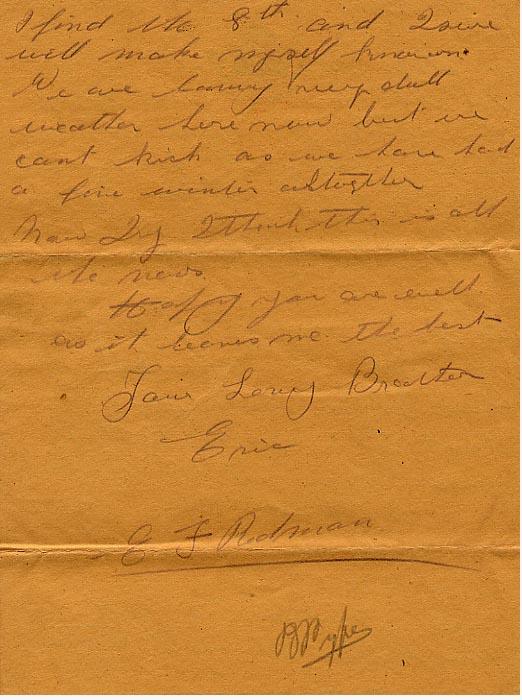 I find the 8th and I sure
will make myself known.
We are having very dull
weather here now but we
cant kick as we have had
a fine winter altogther
Now I think this is all
the news
Hopg you are well
as it leaves me the best
Your Loving Brother
Eric
E F Redman